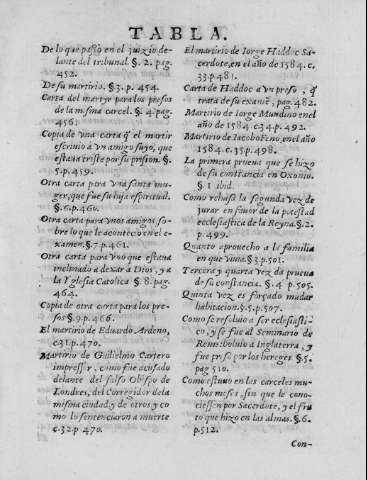 TABLA.
De lo que passò en el juizio de-
lante del tribunal. §. 2. pag.
452.
De su martirio. §3. p. 454.
Carta del martyr para los presos
de la misma carcel. §. 4 pag.
456.
Copia de vna carta q̃ el martir
escriuio à vn amigo suyo, que
estaua triste por su prision. §.
5. p. 459.
Otra carta para vna santa mu-
ger, que fue su hija espiritual.
§. 6. p. 460.
Otra carta para vnos amigos so-
bre lo que le aconteciò en el e-
xamen. §7 p. 461.
Otra carta para vno que estaua
inclinado a dexar a Dios, y a
la Yglesia Catolica §. 8. pag.
464.
Copia de otra carta para los pre-
sos §9. p. 466.
El martirio de Eduardo Ardeno,
c31. p. 470.
Martirio de Guilielmo Cartero
impressor, como fue acusado
delante del falso Obispo de
Londres, del Corregidor de la
misma ciudad, y de otros y co
mo lo sentenciaron a muerte
c.32. p 470.
El martirio de Iorge Haddoc Sa-
cerdote, en el año de 1584. c.
33. p 481.
Carta de Haddoc a vn preso, q̃
trata de su examẽ, pag. 482.
Martirio de Iorge Mundino en el
año de 1584 c.34. p. 492.
Martirio de Iacobo Feno, en el año
1584. c. 35. p. 498.
La primera prueua que se hizo
de su constancia en Oxonio.
§ 1 ibid.
Como rehusò la segunda vez de
jurar en fauor de la potestad
ecclesiastica de la Reyna. §. 2.
p. 499.
Quanto aprouecho a la familia
en que viuia. §3. p.501.
Tercera y quarta vez da prueua
de su constancia. §. 4. p. 505.
Quinta vez es forçado mudar
habitacion. §. 5. p. 507.
Como se resoluio a ser ecclesiasti-
co, y se fue al Seminario de
Rems: boluio a Inglaterra, y
fue preso por los hereges §5.
pag 510.
Como estuuo en las carceles mu-
chos meses, sin que le cono-
ciessen por Sacerdote, y el fru
to que hizo en las almas. §. 6.
p.512.
Con-